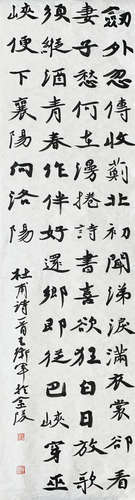 劍外忽傳收薊北初聞涕淚滿衣裳卻看
妻子愁何在漫捲詩書喜欲狂白日放歌
須縱酒青春作伴好還鄉即從巴峽穿巫
峽便下襄陽向洛陽
杜甫詩一首王衛軍於金陵